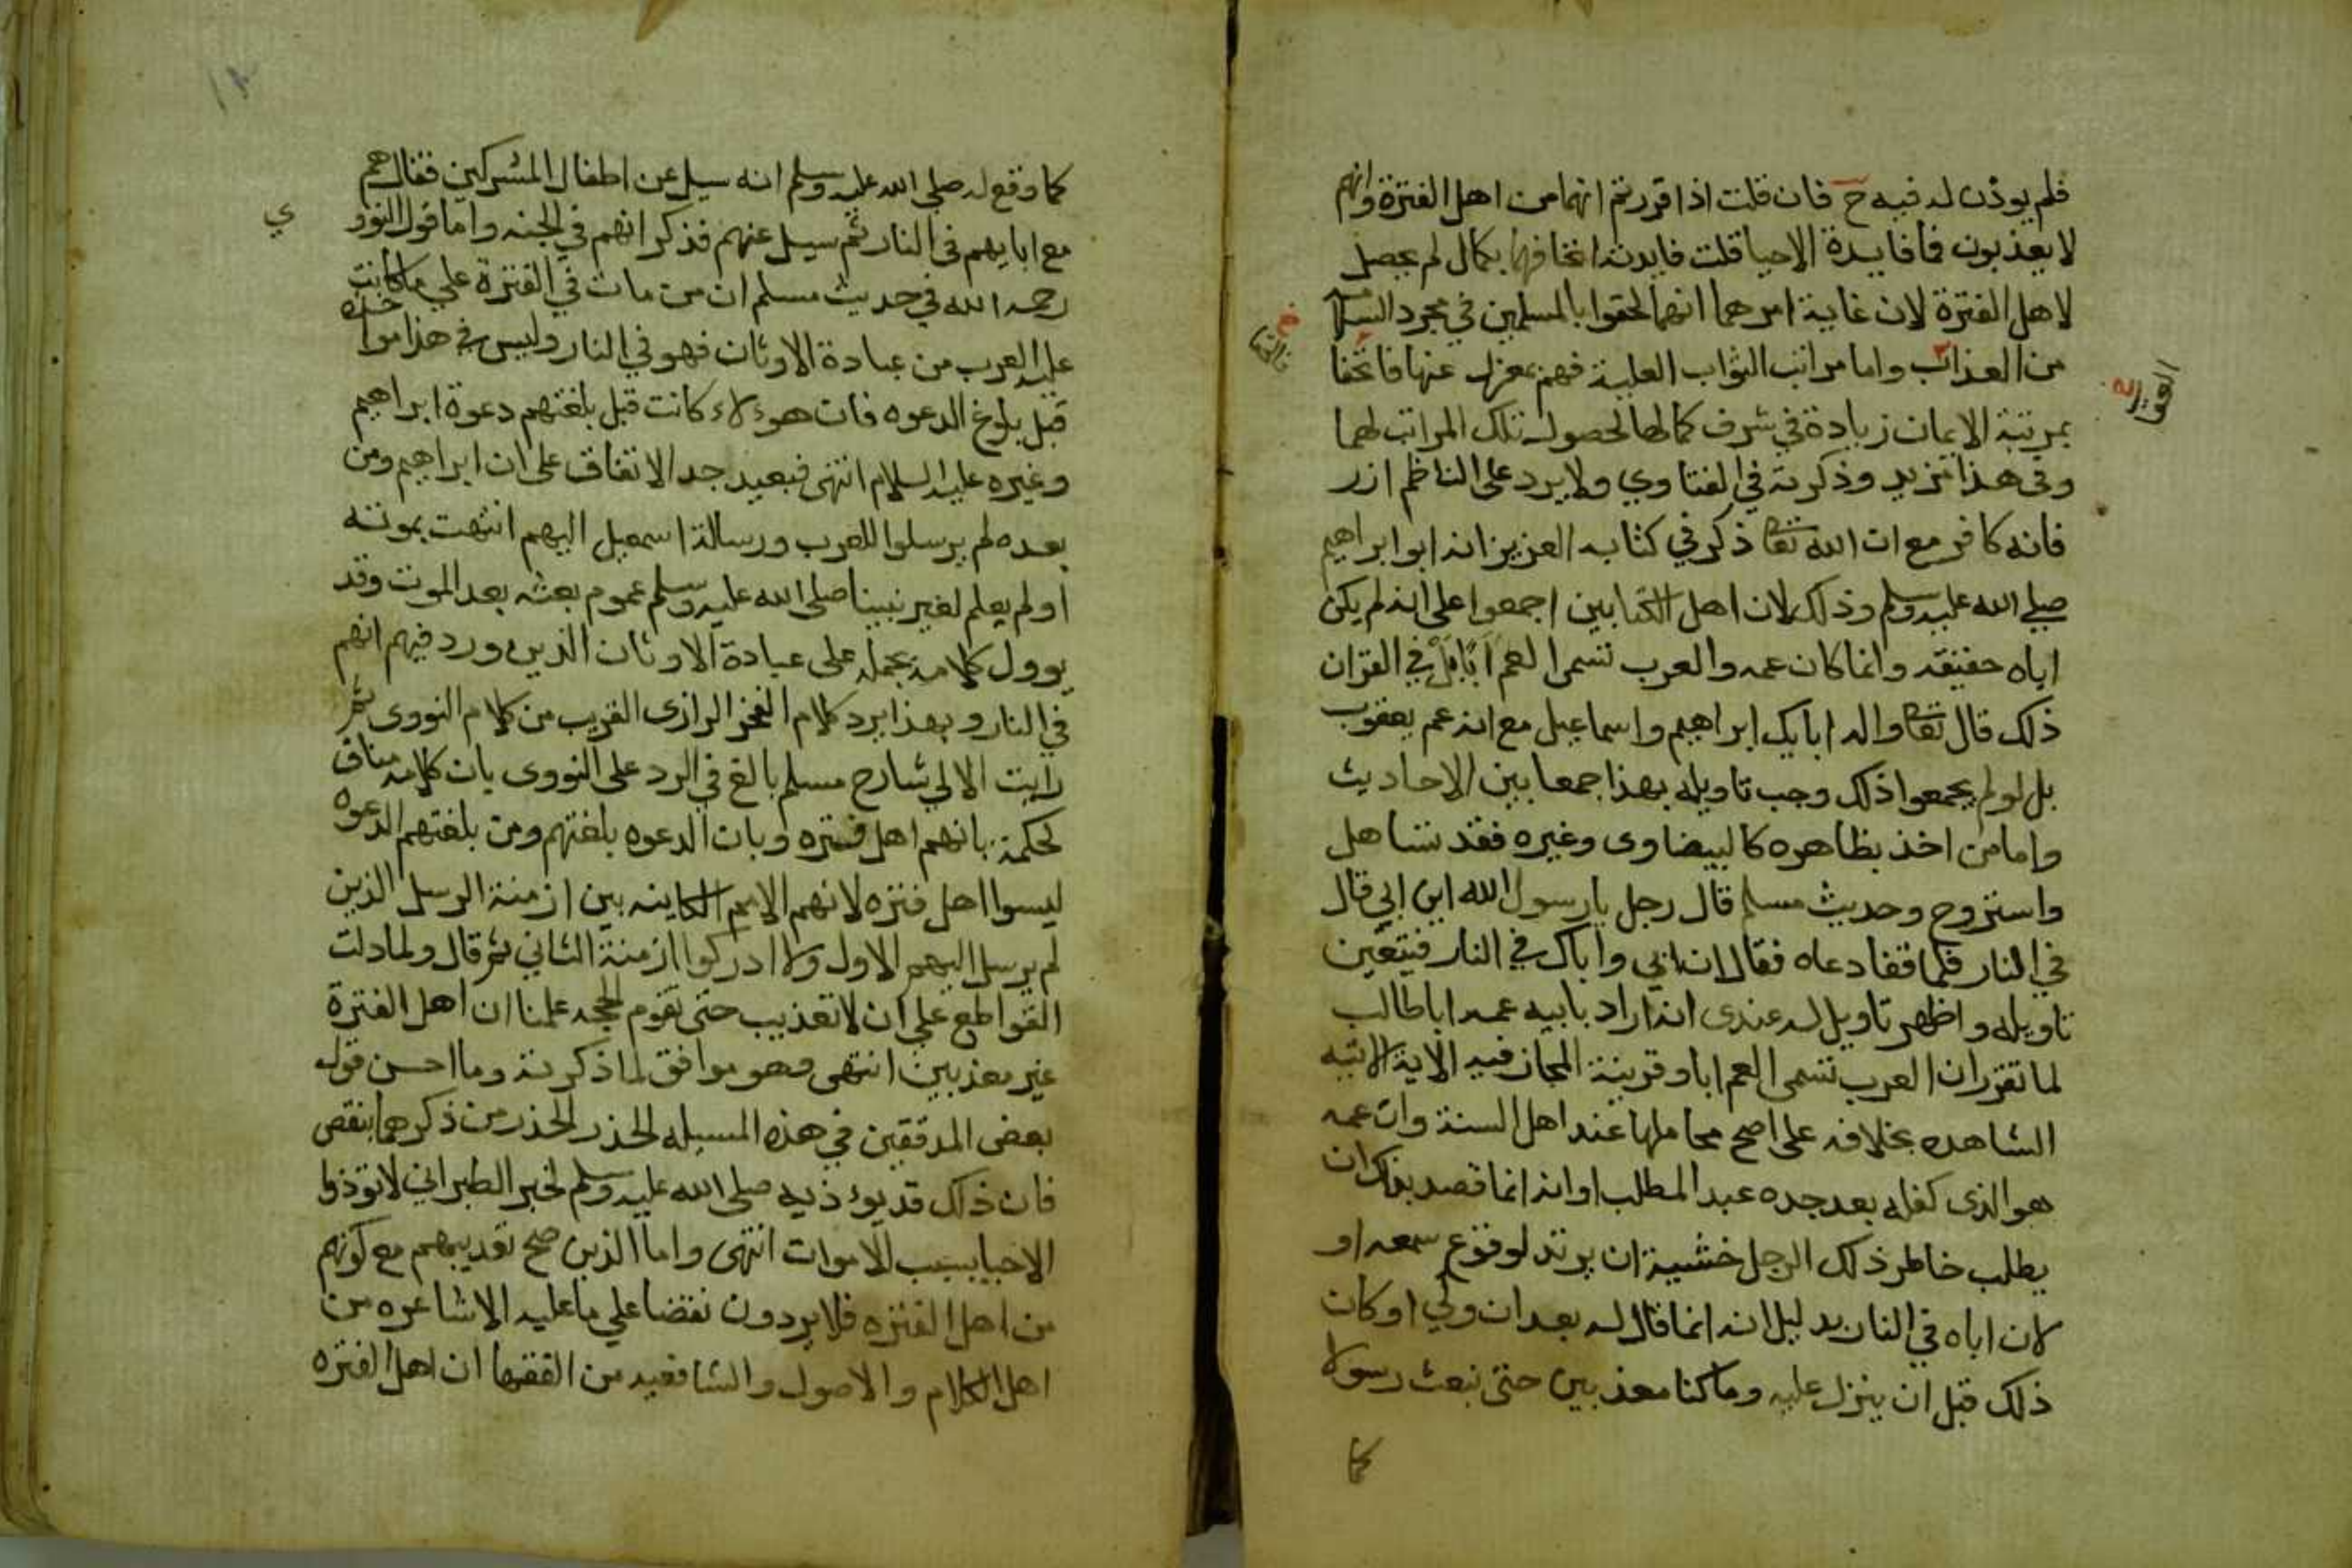 فلم يوذن له فيه ح فان قلت اذا قررتم انهما من اهل الفترة وانهم
لا يعذبون فما فايدة الاحيا قلت فايدته اتحافهما بكمال لم يحصل
لاهل الفترة لان غاية امرهما انهما لحقوا بالمسلمين في مجرد السلامه
من العذاب واما مراتب الثواب العلية فهم بمعزل عنها فاتحفا
بمرتبة الايمان زيادة في شرف كمالهما لحصول تلك المراتب لهما
وفي هذا مزيد وذكرته في الفتاوي ولا يرد على الناظم ازر
فانه كافر مع ان الله تعا ذكر في كتابه العزيز انه ابو ابراهيم
صلى الله عليه وسلم وذلك لان اهل الكتابين اجمعوا على انه لم يكن
اباه حقيقه وانما كان عمه والعرب تسمى العم ابا بل في القران
ذلك قال تعا واله ابايك ابراهيم واسماعيل مع انه عم يعقوب
بل لو لم يجمعوا ذلك وجب تاويله بهذا جمعا بين الاحاديث
واما من اخذ بظاهره كالبيضاوى وغيره فقد تساهل
واستروح وحديث مسلم قال رجل يا رسول الله اين ابي قال
في النار فلما قفا دعاه فقال ان ابي واباك في النار فيتعين
تاويله واظهر تاويل له عندى انه اراد بابيه عمه ابا طالب
لما تقرر ان العرب تسمى العم ابا وقرينة المجاز فيه الاية الاتيه
الشاهده بخلافه على اصح محاملها عند اهل السنة وان عمه
هو الذى كفله بعد جده عبد المطلب او انه انما قصد بذلك ان
يطلب خاطر ذلك الرجل خشية ان يرتد لو قرع سمعه او
لان اباه في النار بدليل انه انما قال له بعد ان ولي او كان
ذلك قبل ان ينزل عليه وما كنا معذبين حتى نبعث رسولا
كما
كما وقع له صلى الله عليه وسلم انه سيل عن اطفال المشركين فقال هم
مع ابايهم في النار ثم سيل عنهم فذكر انهم في الجنه واما قول النوو
ي
رحمه الله في حديث مسلم ان من مات في الفترة علي ما كانت
عليه العرب من عبادة الاوثان فهو في النار وليس في هذا مواخذه
قبل بلوغ الدعوه فان هوءلاء كانت قبل بلغتهم دعوة ابراهيم
وغيره عليه السلام انتهى فبعيد جد الاتفاق على ان ابراهيم ومن
بعده لم يرسلوا للعرب ورسالة اسمعيل اليهم انتهت بموته
او لم يعلم لغير نبينا صلى الله عليه وسلم عموم بعثه بعد الموت وقد
يوول كلامه بحمله على عبادة الاوثان الذين ورد فيهم انهم
في النار وبهذا يرد كلام الفخر الرازى القريب من كلام النووى ثم
رايت الالي شارح مسلم بالغ في الرد على النووى بان كلامه مناف
لحكمه بانهم اهل فتره وبان الدعوه بلغتهم ومن بلغتهم الدعوه
ليسوا اهل فتره لانهم الامم الكاينه بين ازمنة الرسل الذين
لم يرسل اليهم الاول ولا ادركوا ازمنة الثاني ثم قال ولما دلت
القواطع علي ان لا تعذيب حتى تقوم الحجه علمنا ان اهل الفترة
غير معذبين انتهى وهو موافق لما ذكرته وما احسن قول
بعض المدققين في هذه المسيله الحذر الحذر من ذكرهما بنقص
فان ذلك قد يوءذيه صلى الله عليه وسلم لخبر الطبراني لا توذوا
الاحيا بسبب الاموات انتهى واما الذين صح تعذيبهم مع كونهم
من اهل الفتره فلا يردون نقضا علي ما عليه الاشاعره من
اهل الكلام والاصول والشافعيه من الفقها ان اهل الفتره